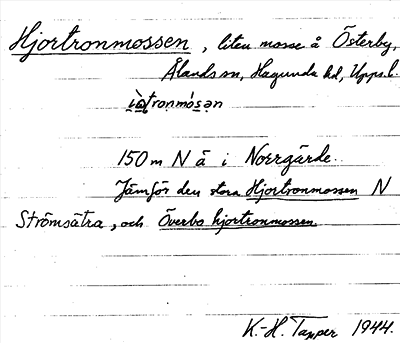 Hjortronmossen, liten mosse å Österby,
Ålands sn, Hagunda hd, Upps. l.
150 m N å i Norrgärde.
Jämför den stora Hjortronmossen N
Strömsätra, och Överbo hjortronmossen
K.-H. Tapper 1944.